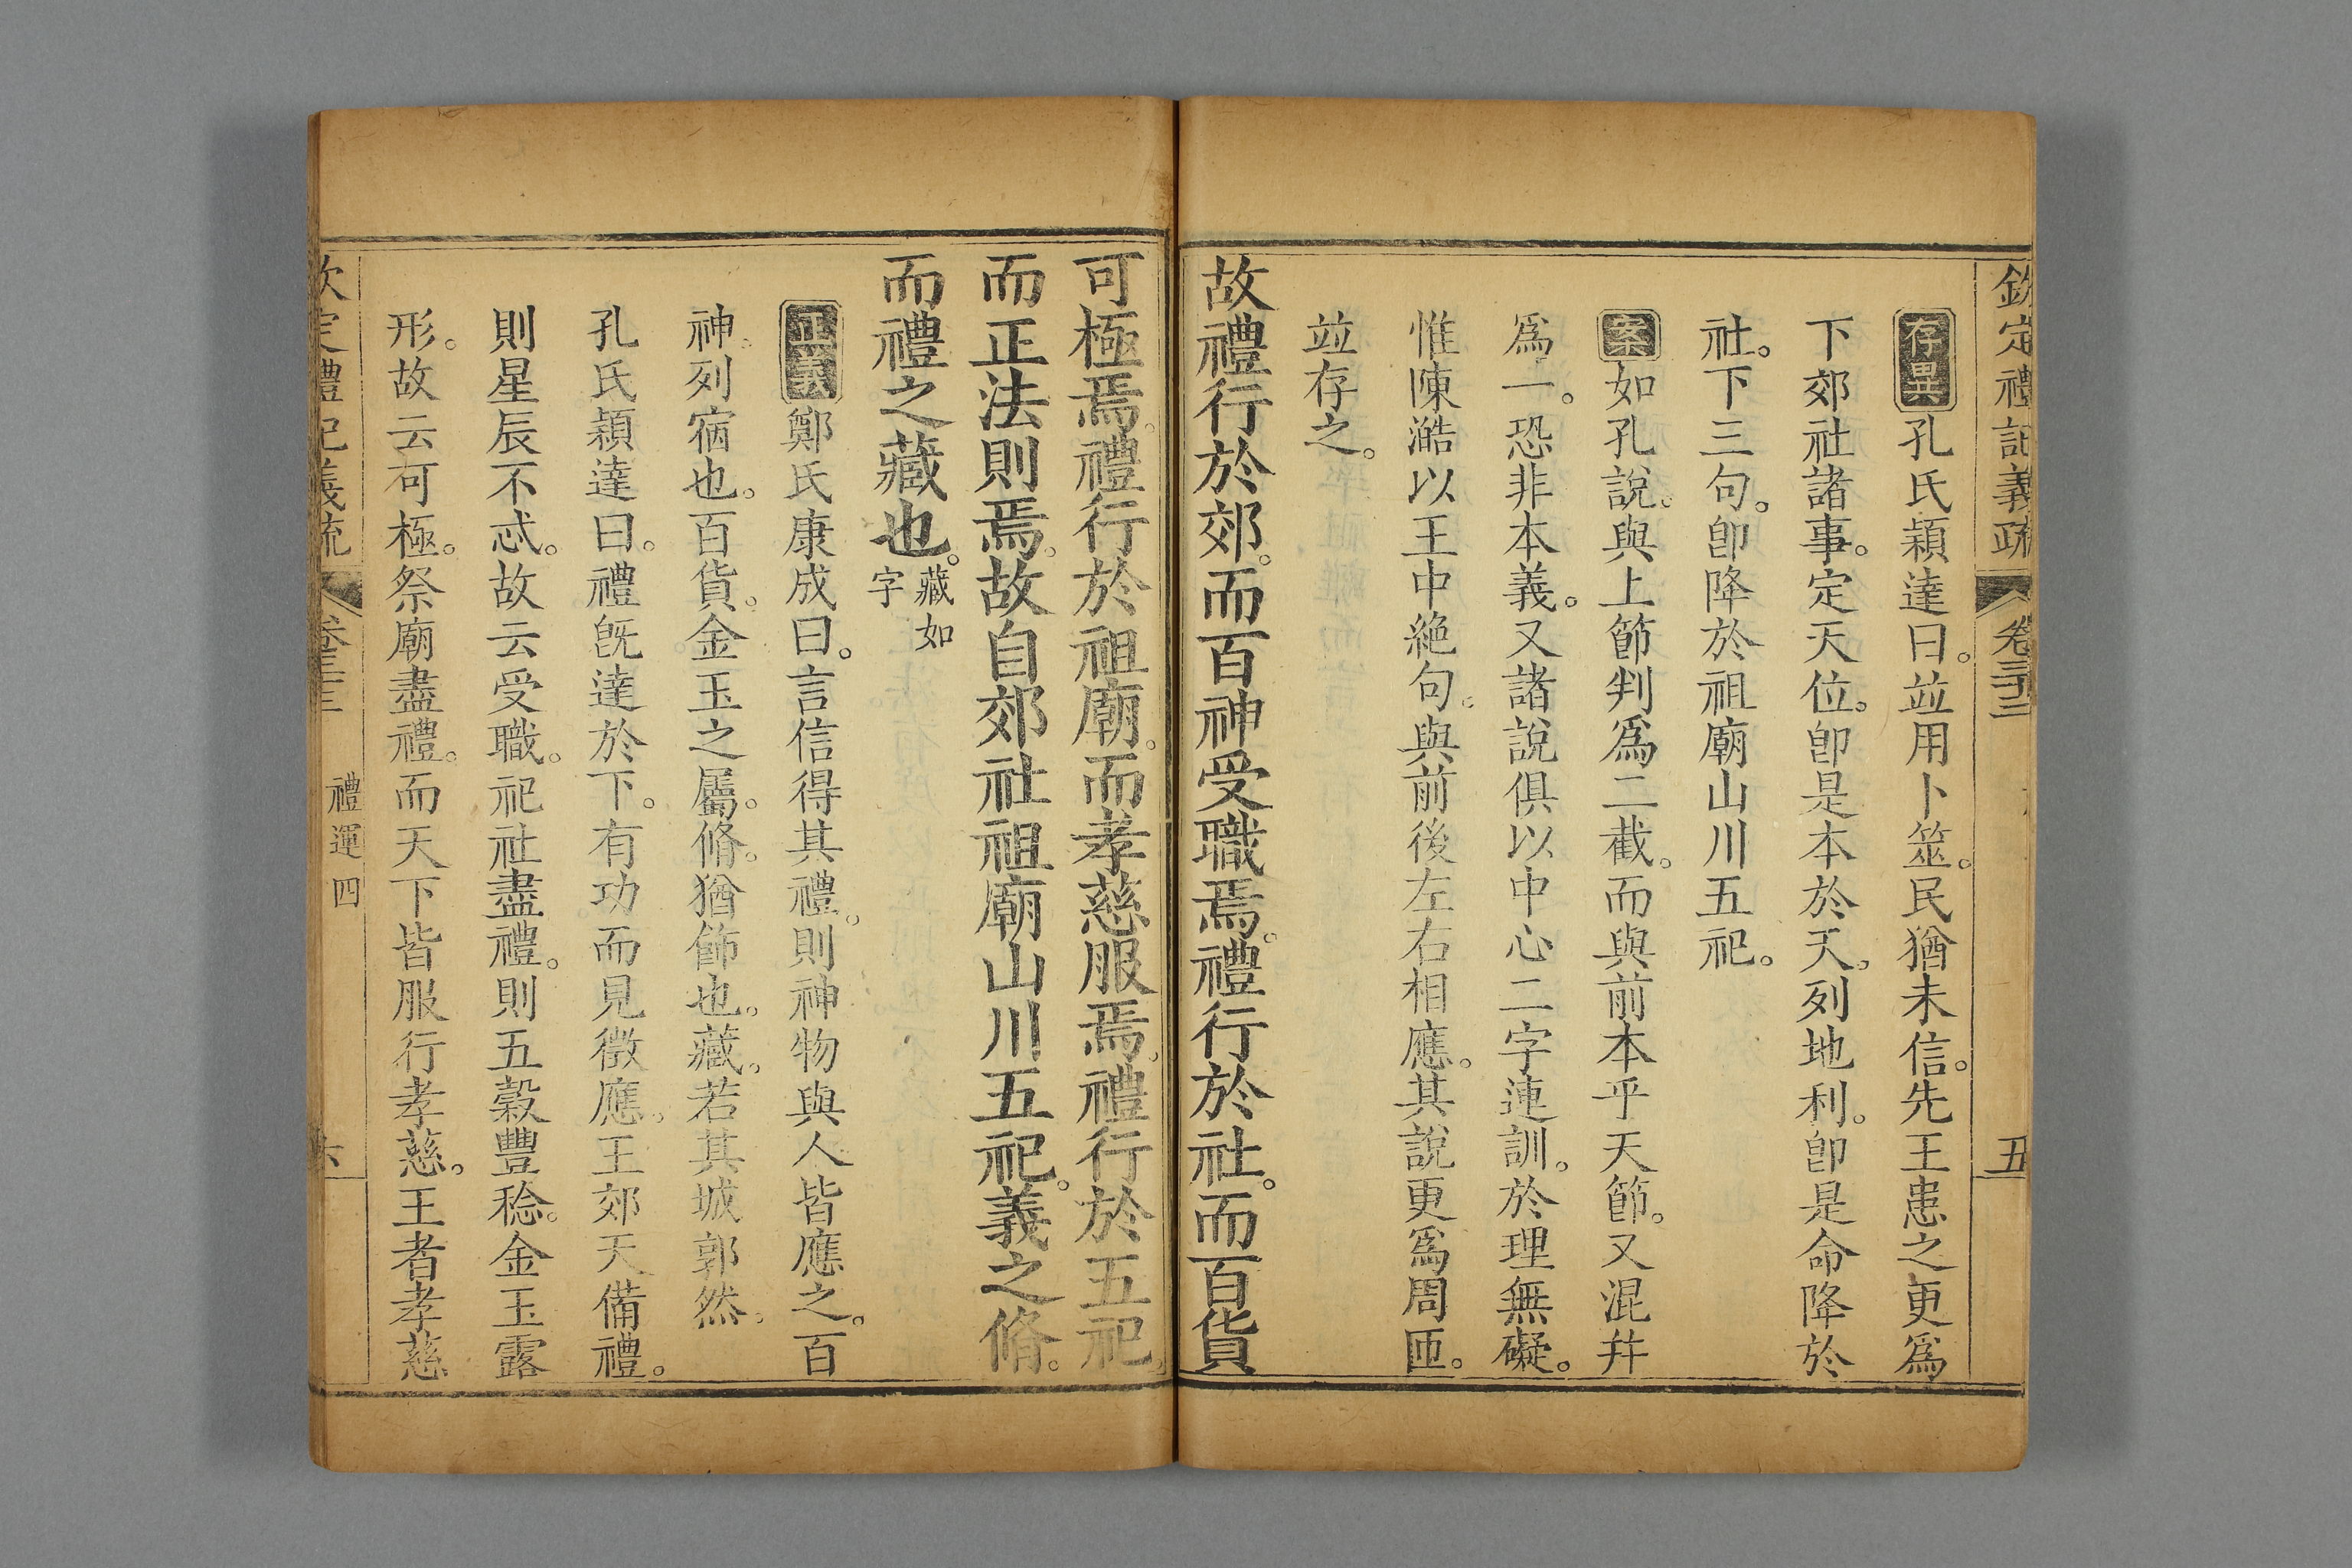 欽定禮記義疏 卷三十三 五
存異孔氏穎達曰。並用卜筮。民猶未信。先王患之更爲
下郊社諸事。定天位。卽是本於天。列地利。卽是命降於
社。下三句。卽降於祖廟山川五祀。
案如孔說。與上節判爲二截。而與前本乎天節。又混幷
爲一。恐非本義。又諸說俱以中心二字連訓。於理無礙。
惟陳澔以王中絶句。與前後左右相應。其說更爲周匝。
並存之。
故禮行於郊。而百神受職焉。禮行於社。而百貨
可極焉。禮行於祖廟。而孝慈服焉。禮行於五祀。
而正法則焉。故自郊社祖廟山川五祀。義之脩。
而禮之藏也。藏如字
正義鄭氏康成曰。言信得其禮。則神物與人皆應之。百
神。列宿也。百貨。金玉之屬。脩。猶飾也。藏。若其城郭然。
孔氏穎達曰。禮旣達於下。有功而見徵應。王郊天備禮。
則星辰不忒。故云受職。祀社盡禮。則五穀豐稔。金玉露
形。故云可極。祭廟盡禮。而天下皆服行孝慈。王者孝慈
欽定禮記義疏 卷三十三 禮運四 六